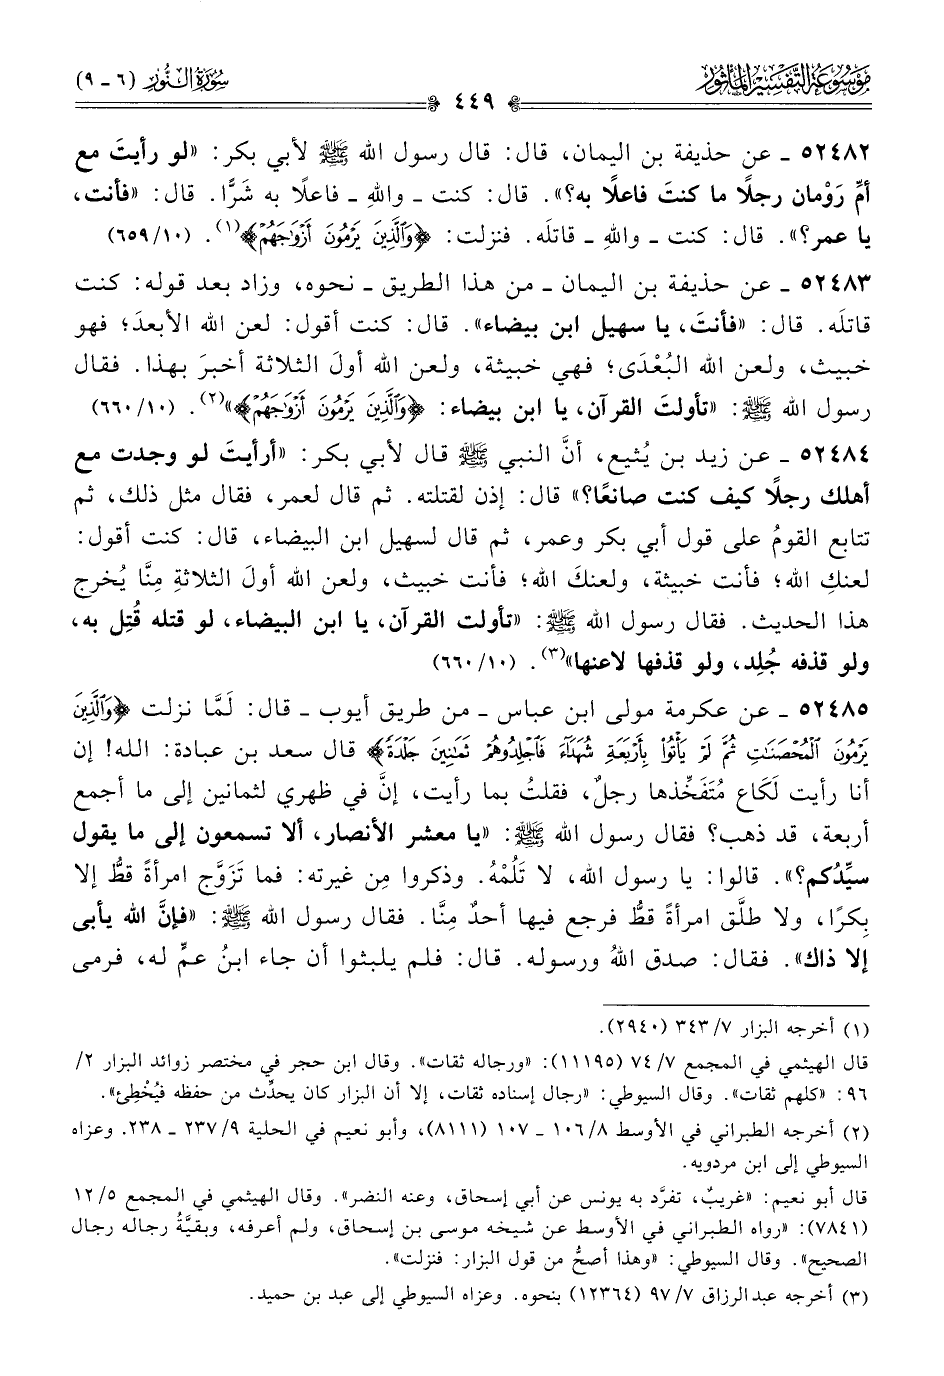 موسوعة التفسير المأثور
سورة النور (٦ - ٩)
٤٤٩
٥٢٤٨٢ - عن حذيفة بن اليمان، قال: قال رسول الله ﷺ لأبي بكر: «لو رأيتَ مع
أمِّ رَوْمان رجلًا ما كنتَ فاعلًا به؟». قال: كنت - واللهِ - فاعلًا به شَرًّا. قال: «فأنت،
يا عمر؟». قال: كنت - واللهِ - قاتلَه. فنزلت: ﴿وَٱلَّذِينَ يَرْمُونَ أَزْوَٰجَهُمْ﴾(١). (٦٥٩/١٠)
٥٢٤٨٣ - عن حذيفة بن اليمان - من هذا الطريق - نحوه، وزاد بعد قوله: كنت
قاتلَه. قال: «فأنتَ، يا سهيل ابن بيضاء». قال: كنت أقول: لعن الله الأبعدَ؛ فهو
خبيث، ولعن الله البُعْدَى؛ فهي خبيثة، ولعن الله أولَ الثلاثة أخبرَ بهذا. فقال
رسول الله ﷺ: «تأولتَ القرآن، يا ابن بيضاء: ﴿وَٱلَّذِينَ يَرْمُونَ أَزْوَٰجَهُمْ﴾»(٢). (٦٦٠/١٠)
٥٢٤٨٤ - عن زيد بن يُثيع، أنَّ النبي ﷺ قال لأبي بكر: «أرأيتَ لو وجدت مع
أهلك رجلًا كيف كنت صانعًا؟» قال: إذن لقتلته. ثم قال لعمر، فقال مثل ذلك، ثم
تتابع القومُ على قول أبي بكر وعمر، ثم قال لسهيل ابن البيضاء، قال: كنت أقول:
لعنكِ الله؛ فأنت خبيثة، ولعنكَ الله؛ فأنت خبيث، ولعن الله أولَ الثلاثةِ مِنَّا يُخرج
هذا الحديث. فقال رسول الله ﷺ: «تأولت القرآن، يا ابن البيضاء، لو قتله قُتِل به،
ولو قذفه جُلِد، ولو قذفها لاعنها»(٣). (٦٦٠/١٠)
٥٢٤٨٥ - عن عكرمة مولى ابن عباس - من طريق أيوب - قال: لَمَّا نزلت ﴿وَٱلَّذِينَ
يَرْمُونَ ٱلْمُحْصَنَٰتِ ثُمَّ لَمْ يَأْتُوا۟ بِأَرْبَعَةِ شُهَدَآءَ فَٱجْلِدُوهُمْ ثَمَٰنِينَ جَلْدَةً﴾ قال سعد بن عبادة: الله! إن
أنا رأيت لَكَاعِ مُتَفَخِّذها رجلٌ، فقلتُ بما رأيت، إنَّ في ظهري لثمانين إلى ما أجمع
أربعة، قد ذهب؟ فقال رسول الله ﷺ: «يا معشر الأنصار، ألا تسمعون إلى ما يقول
سيِّدُكم؟». قالوا: يا رسول الله، لا تَلُمْهُ. وذكروا مِن غيرته: فما تَزَوَّج امرأةً قطُّ إلا
بِكرًا، ولا طلَّق امرأةً قطُّ فرجع فيها أحدٌ مِنَّا. فقال رسول الله ﷺ: «فإنَّ الله يأبى
إلا ذاك». فقال: صدق اللهُ ورسوله. قال: فلم يلبثوا أن جاء ابنُ عمٍّ له، فرمى
(١) أخرجه البزار ٣٤٣/٧ (٢٩٤٠).
قال الهيثمي في المجمع ٧٤/٧ (١١١٩٥): «ورجاله ثقات». وقال ابن حجر في مختصر زوائد البزار ٢/
٩٦: «كلهم ثقات». وقال السيوطي: «رجال إسناده ثقات، إلا أن البزار كان يحدِّث من حفظه فيُخْطِئ».
(٢) أخرجه الطبراني في الأوسط ١٠٦/٨ - ١٠٧ (٨١١١)، وأبو نعيم في الحلية ٢٣٧/٩ - ٢٣٨. وعزاه
السيوطي إلى ابن مردويه.
قال أبو نعيم: «غريبٌ، تفرَّد به يونس عن أبي إسحاق، وعنه النضر». وقال الهيثمي في المجمع ١٢/٥
(٧٨٤١): «رواه الطبراني في الأوسط عن شيخه موسى بن إسحاق، ولم أعرفه، وبقيَّةُ رجاله رجال
الصحيح». وقال السيوطي: «وهذا أصحُّ من قول البزار: فنزلت».
(٣) أخرجه عبدالرزاق ٩٧/٧ (١٢٣٦٤) بنحوه. وعزاه السيوطي إلى عبد بن حميد.